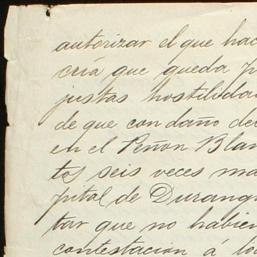 autorizar el que hac
cría que queda p
justas hostilida
de que con daño de
en el Peñon Blan
tos seis veces ma
pital de Durang
tar que no habien
contestacion á lo